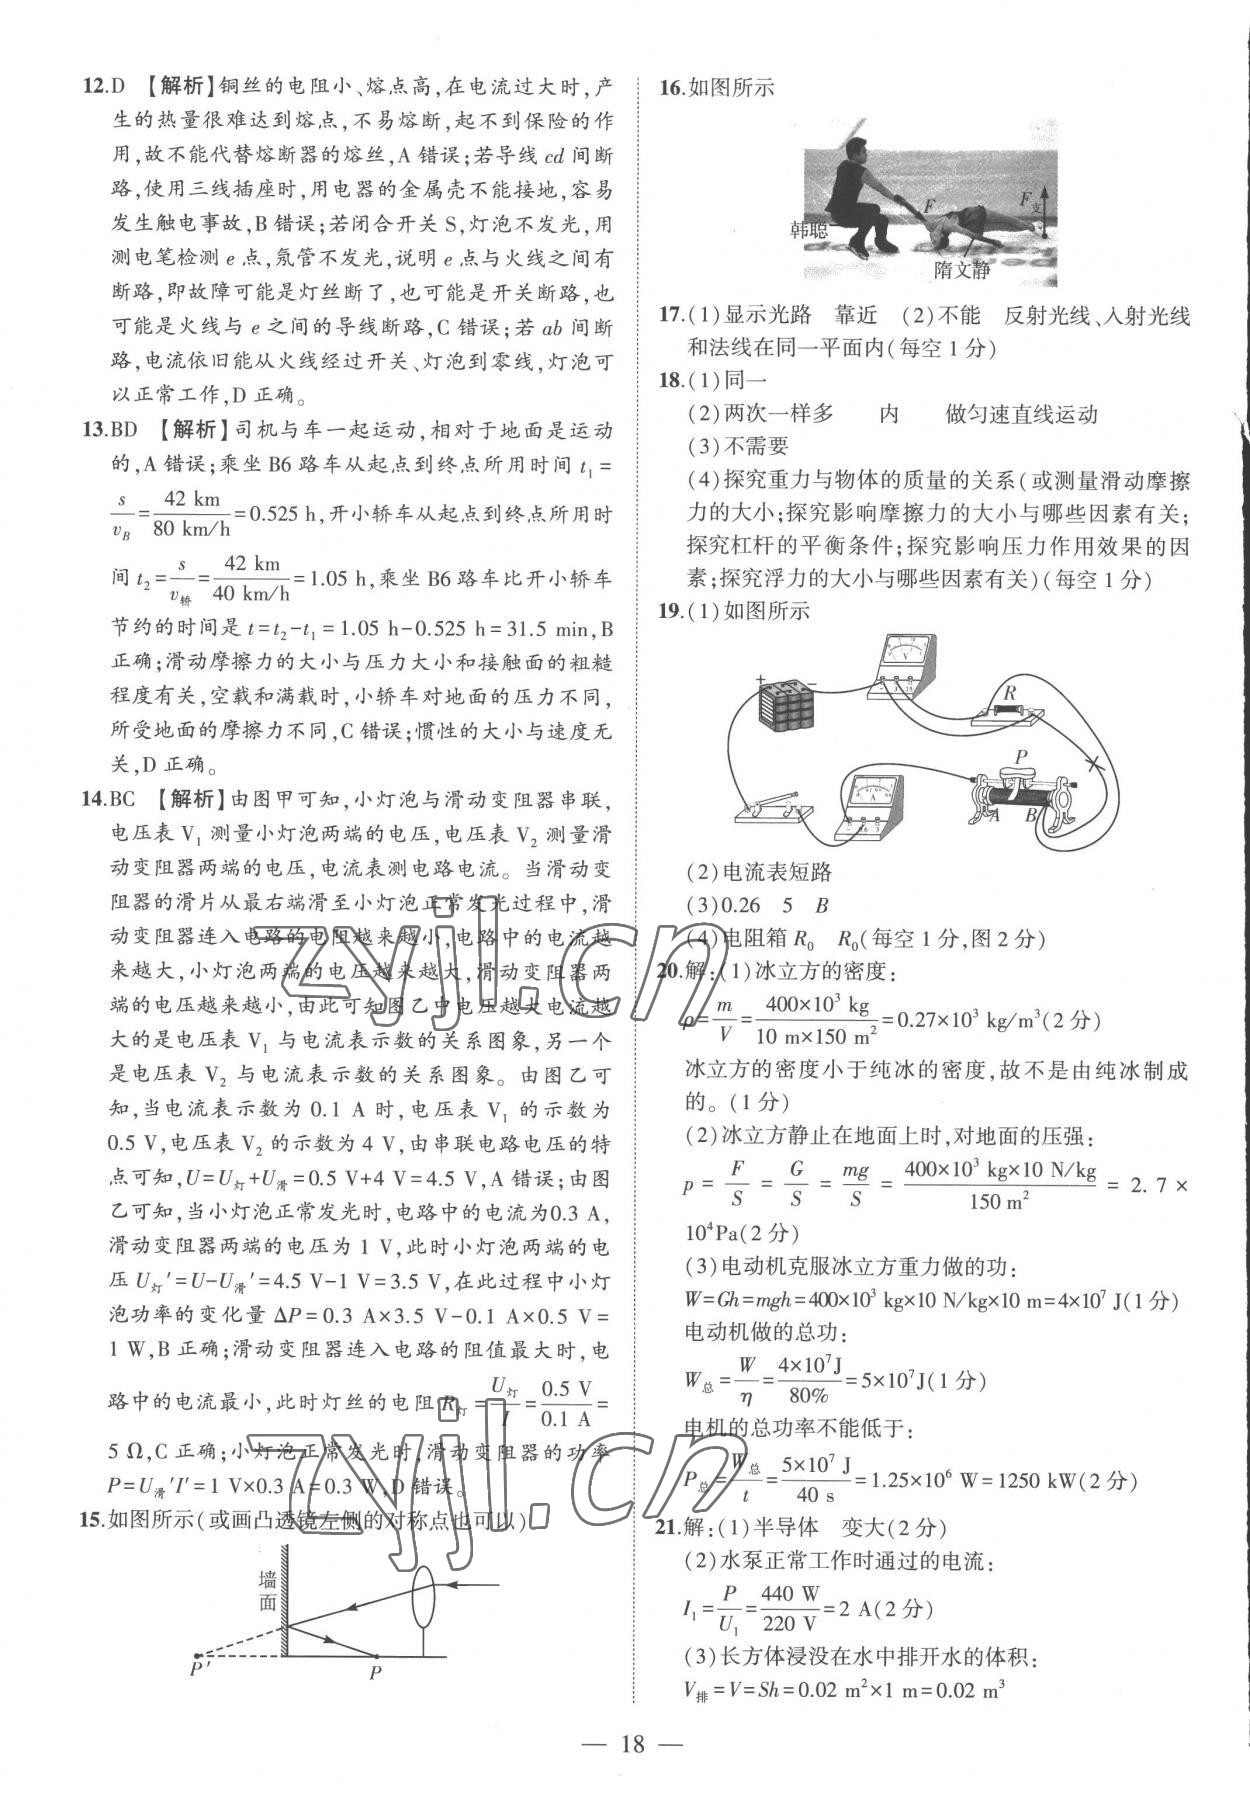 12.D 【解析】铜丝的电阻小、熔点高,在电流过大时,产
生的热量很难达到熔点,不易熔断,起不到保险的作
用,故不能代替熔断器的熔丝,A 错误;若导线 cd 间断
路,使用三线插座时,用电器的金属壳不能接地,容易
发生触电事故,B 错误;若闭合开关 S,灯泡不发光,用
测电笔检测 e 点,氖管不发光,说明 e 点与火线之间有
断路,即故障可能是灯丝断了,也可能是开关断路,也
可能是火线与 e 之间的导线断路,C 错误;若 ab 间断
路,电流依旧能从火线经过开关、灯泡到零线,灯泡可
以正常工作,D 正确。
13.BD 【解析】司机与车一起运动,相对于地面是运动
的,A 错误;乘坐 B6 路车从起点到终点所用时间 t₁ =
s/v_B = 42 km/80 km/h = 0.525 h,开小轿车从起点到终点所用时
间 t₂ = s/v轿 = 42 km/40 km/h = 1.05 h,乘坐 B6 路车比开小轿车
节约的时间是 t=t₂-t₁=1.05 h-0.525 h=31.5 min,B
正确;滑动摩擦力的大小与压力大小和接触面的粗糙
程度有关,空载和满载时,小轿车对地面的压力不同,
所受地面的摩擦力不同,C 错误;惯性的大小与速度无
关,D 正确。
14.BC 【解析】由图甲可知,小灯泡与滑动变阻器串联,
电压表 V₁ 测量小灯泡两端的电压,电压表 V₂ 测量滑
动变阻器两端的电压,电流表测电路电流。当滑动变
阻器的滑片从最右端滑至小灯泡正常发光过程中,滑
动变阻器连入电路的电阻越来越小,电路中的电流越
来越大,小灯泡两端的电压越来越大,滑动变阻器两
端的电压越来越小,由此可知图乙中电压越大电流越
大的是电压表 V₁ 与电流表示数的关系图象,另一个
是电压表 V₂ 与电流表示数的关系图象。由图乙可
知,当电流表示数为 0.1 A 时,电压表 V₁ 的示数为
0.5 V,电压表 V₂ 的示数为 4 V,由串联电路电压的特
点可知,U=U灯+U滑=0.5 V+4 V=4.5 V,A 错误;由图
乙可知,当小灯泡正常发光时,电路中的电流为0.3 A,
滑动变阻器两端的电压为 1 V,此时小灯泡两端的电
压 U灯′=U-U滑′=4.5 V-1 V=3.5 V,在此过程中小灯
泡功率的变化量 ΔP=0.3 A×3.5 V-0.1 A×0.5 V=
1 W,B 正确;滑动变阻器连入电路的阻值最大时,电
路中的电流最小,此时灯丝的电阻 R灯 = U灯/I = 0.5 V/0.1 A =
5 Ω,C 正确;小灯泡正常发光时,滑动变阻器的功率
P=U滑′I′=1 V×0.3 A=0.3 W,D 错误。
15.如图所示(或画凸透镜左侧的对称点也可以)
墙面
P′
P
16.如图所示
F
F支
韩聪
隋文静
17.(1)显示光路 靠近 (2)不能 反射光线、入射光线
和法线在同一平面内(每空 1 分)
18.(1)同一
(2)两次一样多 内 做匀速直线运动
(3)不需要
(4)探究重力与物体的质量的关系(或测量滑动摩擦
力的大小;探究影响摩擦力的大小与哪些因素有关;
探究杠杆的平衡条件;探究影响压力作用效果的因
素;探究浮力的大小与哪些因素有关)(每空 1 分)
19.(1)如图所示
+
−
V
R
P
A
A
B
(2)电流表短路
(3)0.26 5 B
(4)电阻箱 R₀ R₀(每空 1 分,图 2 分)
20.解:(1)冰立方的密度:
ρ = m/V = 400×10³ kg/10 m×150 m² = 0.27×10³ kg/m³(2 分)
冰立方的密度小于纯冰的密度,故不是由纯冰制成
的。(1 分)
(2)冰立方静止在地面上时,对地面的压强:
p = F/S = G/S = mg/S = 400×10³ kg×10 N/kg/150 m² = 2.7×
10⁴Pa(2 分)
(3)电动机克服冰立方重力做的功:
W=Gh=mgh=400×10³ kg×10 N/kg×10 m=4×10⁷ J(1 分)
电动机做的总功:
W总 = W/η = 4×10⁷J/80% = 5×10⁷J(1 分)
电机的总功率不能低于:
P总 = W总/t = 5×10⁷ J/40 s = 1.25×10⁶ W=1250 kW(2 分)
21.解:(1)半导体 变大(2 分)
(2)水泵正常工作时通过的电流:
I₁ = P/U₁ = 440 W/220 V = 2 A(2 分)
(3)长方体浸没在水中排开水的体积:
V排=V=Sh=0.02 m²×1 m=0.02 m³
— 18 —
zyjl.cn
zyjl.cn